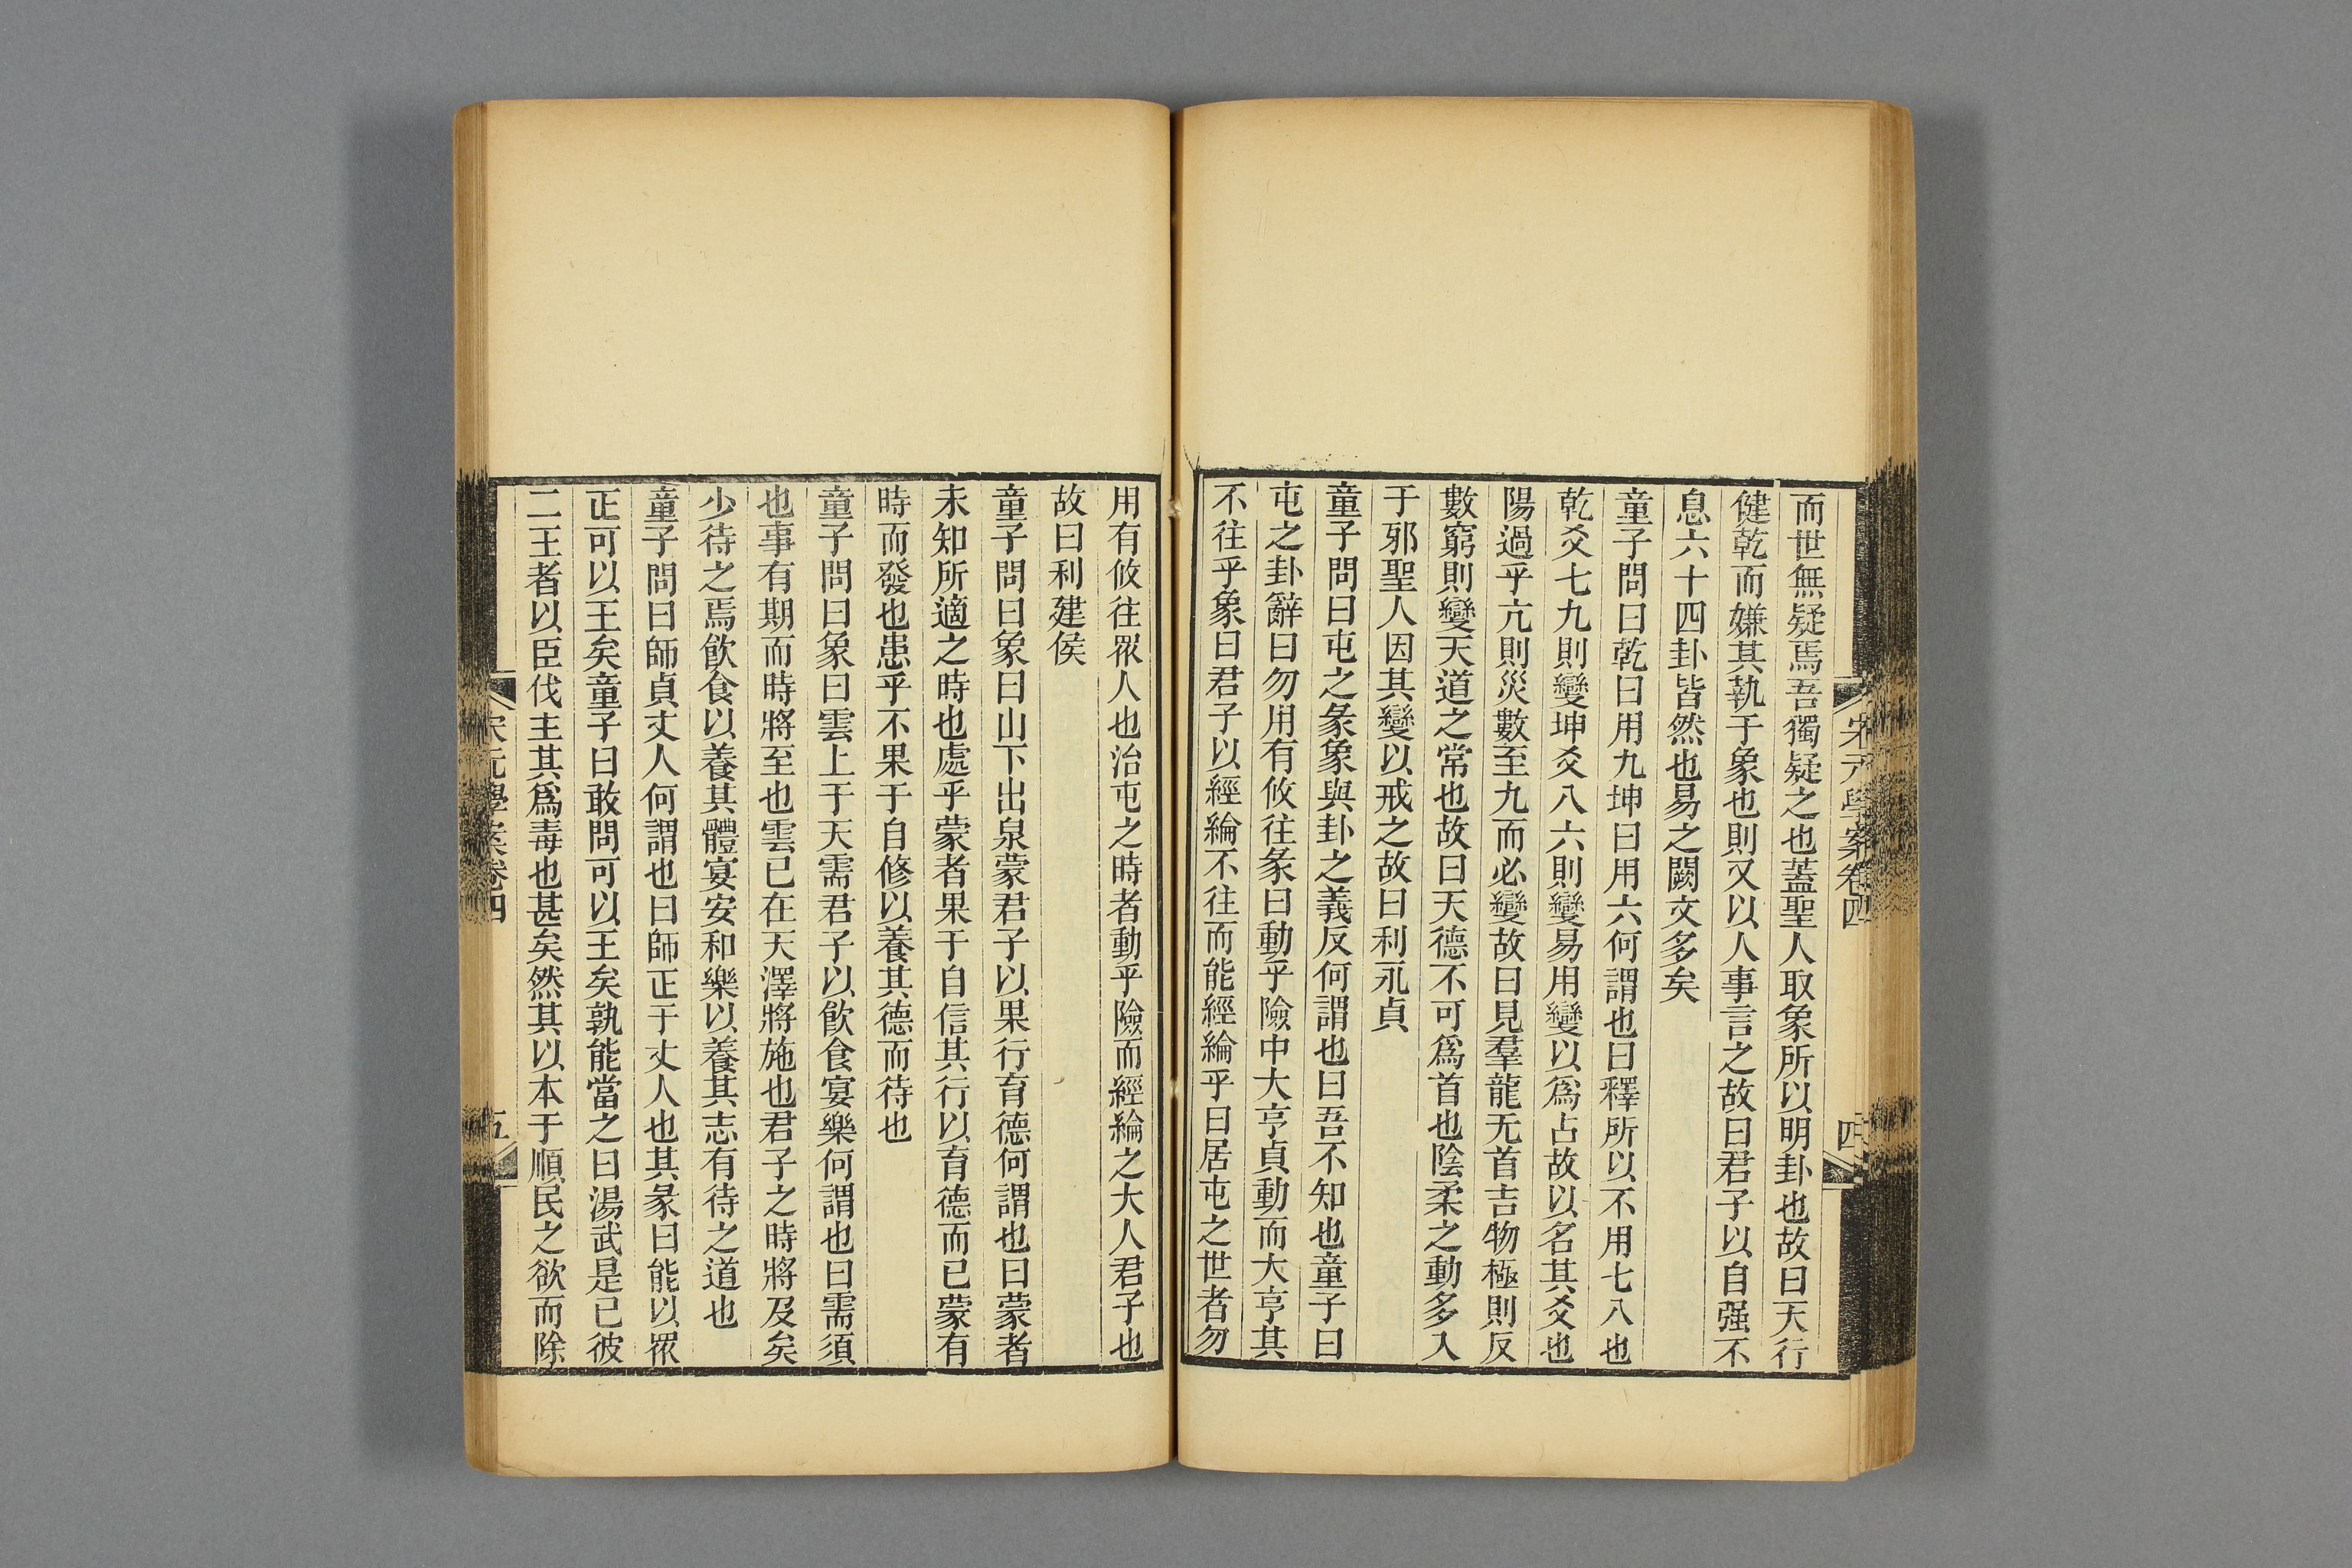 宋元學案卷四
四
而世無疑焉吾獨疑之也蓋聖人取象所以明卦也故曰天行
健乾而嫌其執于象也則又以人事言之故曰君子以自强不
息六十四卦皆然也易之闕文多矣
童子問曰乾曰用九坤曰用六何謂也曰釋所以不用七八也
乾爻七九則變坤爻八六則變易用變以爲占故以名其爻也
陽過乎亢則災數至九而必變故曰見羣龍无首吉物極則反
數窮則變天道之常也故曰天德不可爲首也陰柔之動多入
于邪聖人因其變以戒之故曰利永貞
童子問曰屯之彖象與卦之義反何謂也曰吾不知也童子曰
屯之卦辭曰勿用有攸往彖曰動乎險中大亨貞動而大亨其
不往乎象曰君子以經綸不往而能經綸乎曰居屯之世者勿
用有攸往眾人也治屯之時者動乎險而經綸之大人君子也
故曰利建侯
童子問曰象曰山下出泉蒙君子以果行育德何謂也曰蒙者
未知所適之時也處乎蒙者果于自信其行以育德而已蒙有
時而發也患乎不果于自修以養其德而待也
童子問曰象曰雲上于天需君子以飮食宴樂何謂也曰需須
也事有期而時將至也雲已在天澤將施也君子之時將及矣
少待之焉飮食以養其體宴安和樂以養其志有待之道也
童子問曰師貞丈人何謂也曰師正于丈人也其彖曰能以眾
正可以王矣童子曰敢問可以王矣孰能當之曰湯武是已彼
二王者以臣伐主其爲毒也甚矣然其以本于順民之欲而除
宋元學案卷四
五